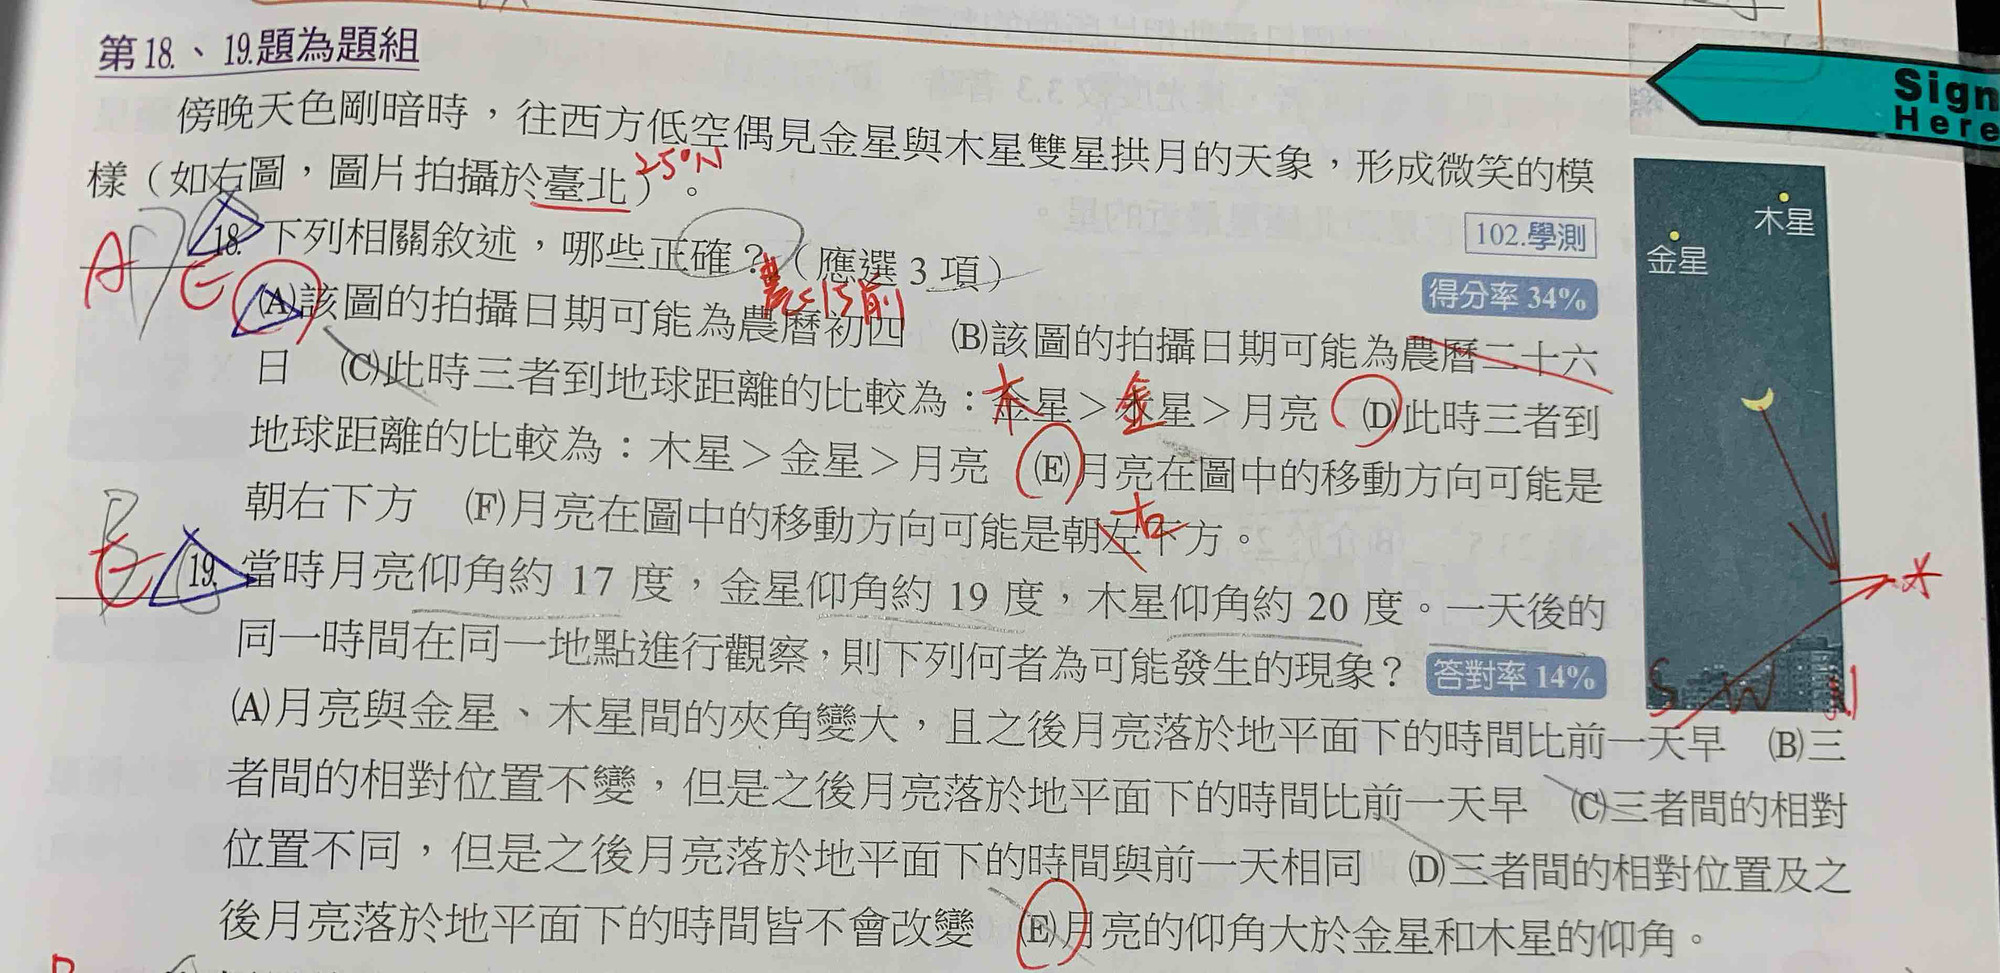 第18.、19.題為題組
Sign
Here
傍晚天色剛暗時，往西方低空偶見金星與木星雙星拱月的天象，形成微笑的模
樣（如右圖，圖片拍攝於臺北）。
25°N
102.學測
18. 下列相關敘述，哪些正確？（應選 3 項）
得分率 34%
A
E
農<15前
(A)該圖的拍攝日期可能為農曆初四　(B)該圖的拍攝日期可能為農曆二十六
日　(C)此時三者到地球距離的比較為：金星＞木星＞月亮　(D)此時三者到
木 金
地球距離的比較為：木星＞金星＞月亮　(E)月亮在圖中的移動方向可能是
朝右下方　(F)月亮在圖中的移動方向可能是朝左下方。
右
木星
金星
S W N
19. 當時月亮仰角約 17 度，金星仰角約 19 度，木星仰角約 20 度。一天後的
E
同一時間在同一地點進行觀察，則下列何者為可能發生的現象？
答對率 14%
(A)月亮與金星、木星間的夾角變大，且之後月亮落於地平面下的時間比前一天早　(B)三
者間的相對位置不變，但是之後月亮落於地平面下的時間比前一天早　(C)三者間的相對
位置不同，但是之後月亮落於地平面下的時間與前一天相同　(D)三者間的相對位置及之
後月亮落於地平面下的時間皆不會改變　(E)月亮的仰角大於金星和木星的仰角。